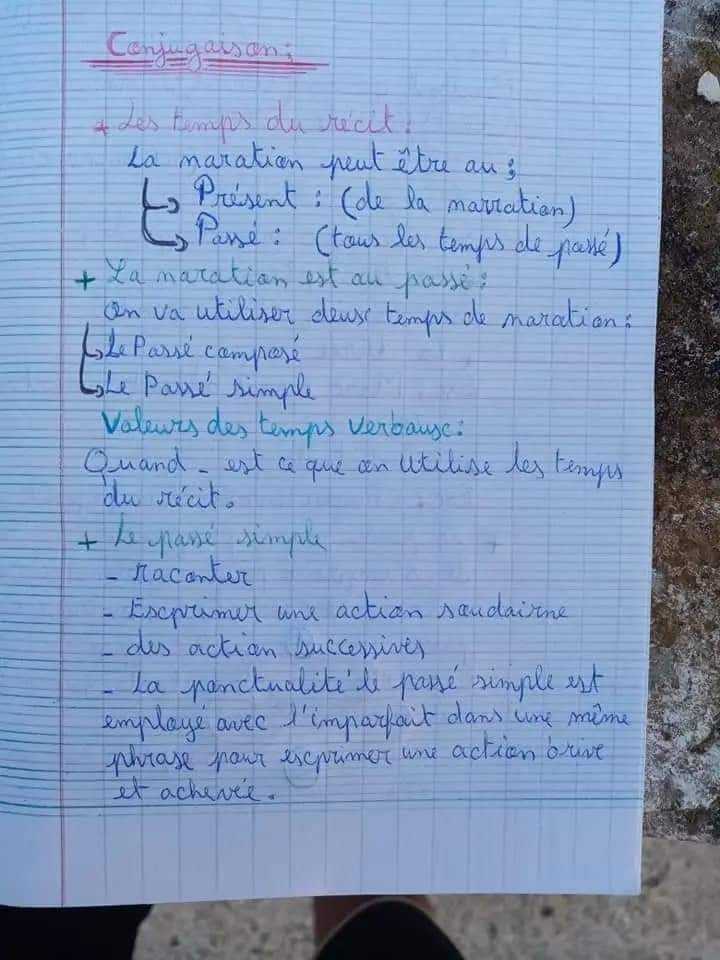 Conjugaison :
* Les temps du récit :
La naration peut être au :
↳ Présent : (de la narration)
↳ Passé : (tous les temps de passé)
+ La naration est au passé :
on va utiliser deux temps de naration :
↳ Le Passé composé
↳ Le Passé simple
Valeurs des temps verbaux :
Quand - est ce que on utilise les temps
du récit.
+ Le passé simple
- raconter
- Exprimer une action soudairne
- des action successives
- La ponctualité le passé simple est
employé avec l'imparfait dans une même
phrase pour exprimer une action brive
et achevée.